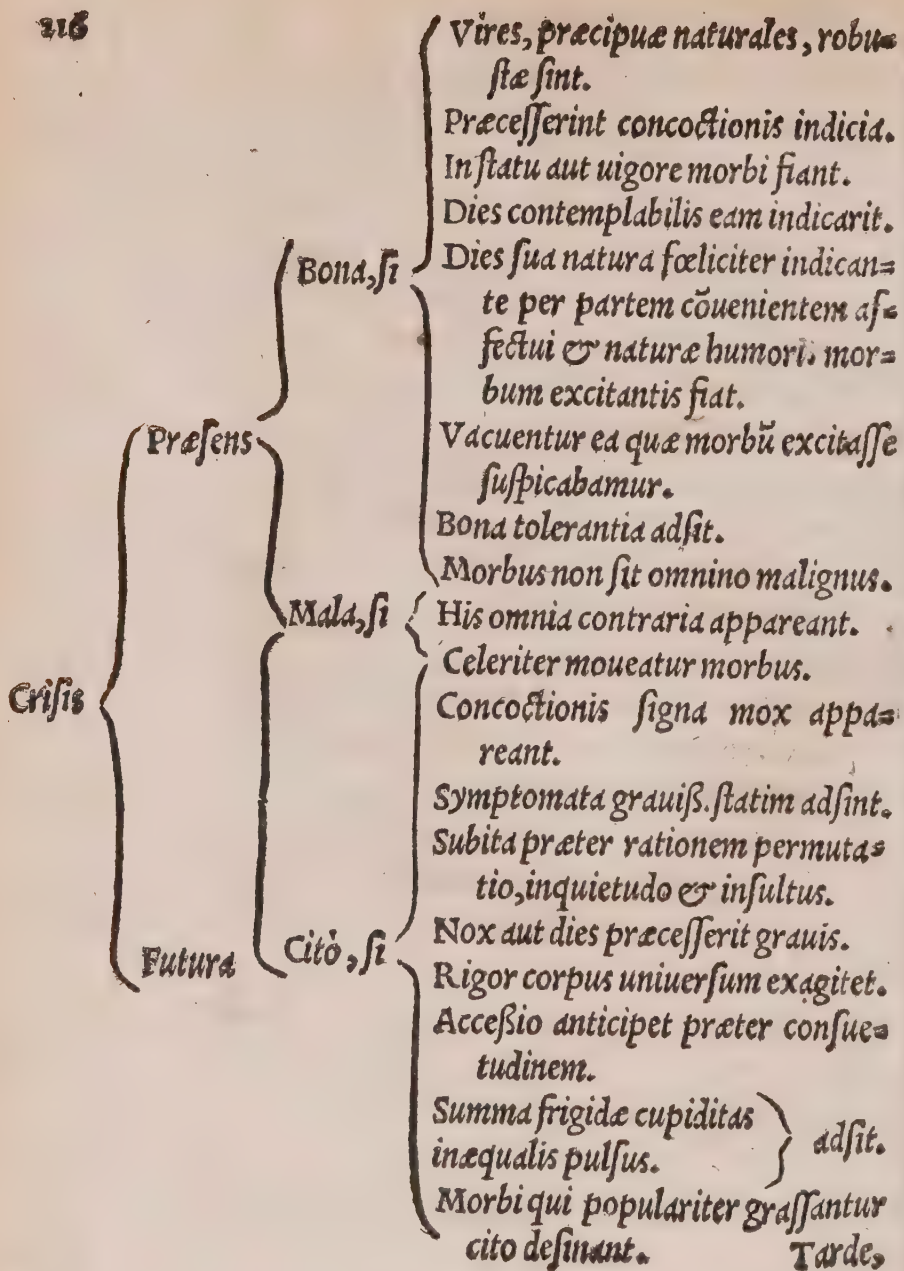 216
Vires, præcipuæ naturales, robu=
ſtæ ſint.
Præceſſerint concoctionis indicia.
In ſtatu aut uigore morbi fiant.
Dies contemplabilis eam indicarit.
Bona, ſi
Dies ſua natura fœliciter indican=
te per partem cōuenientem af=
fectui & naturæ humori. mor=
bum excitantis fiat.
Præſens
Vacuentur ea quæ morbū excitaſſe
ſuſpicabamur.
Bona tolerantia adſit.
Morbus non ſit omnino malignus.
Mala, ſi
His omnia contraria appareant.
Celeriter moueatur morbus.
Criſis
Concoctionis ſigna mox appa=
reant.
Symptomata grauiß. ſtatim adſint.
Subita præter rationem permuta=
tio, inquietudo & inſultus.
Futura
Citò, ſi
Nox aut dies præceſſerit grauis.
Rigor corpus uniuerſum exagitet.
Acceßio anticipet præter conſue=
tudinem.
Summa frigidæ cupiditas
inæqualis pulſus.
adſit.
Morbi qui populariter graſſantur
cito deſinant.
Tarde,